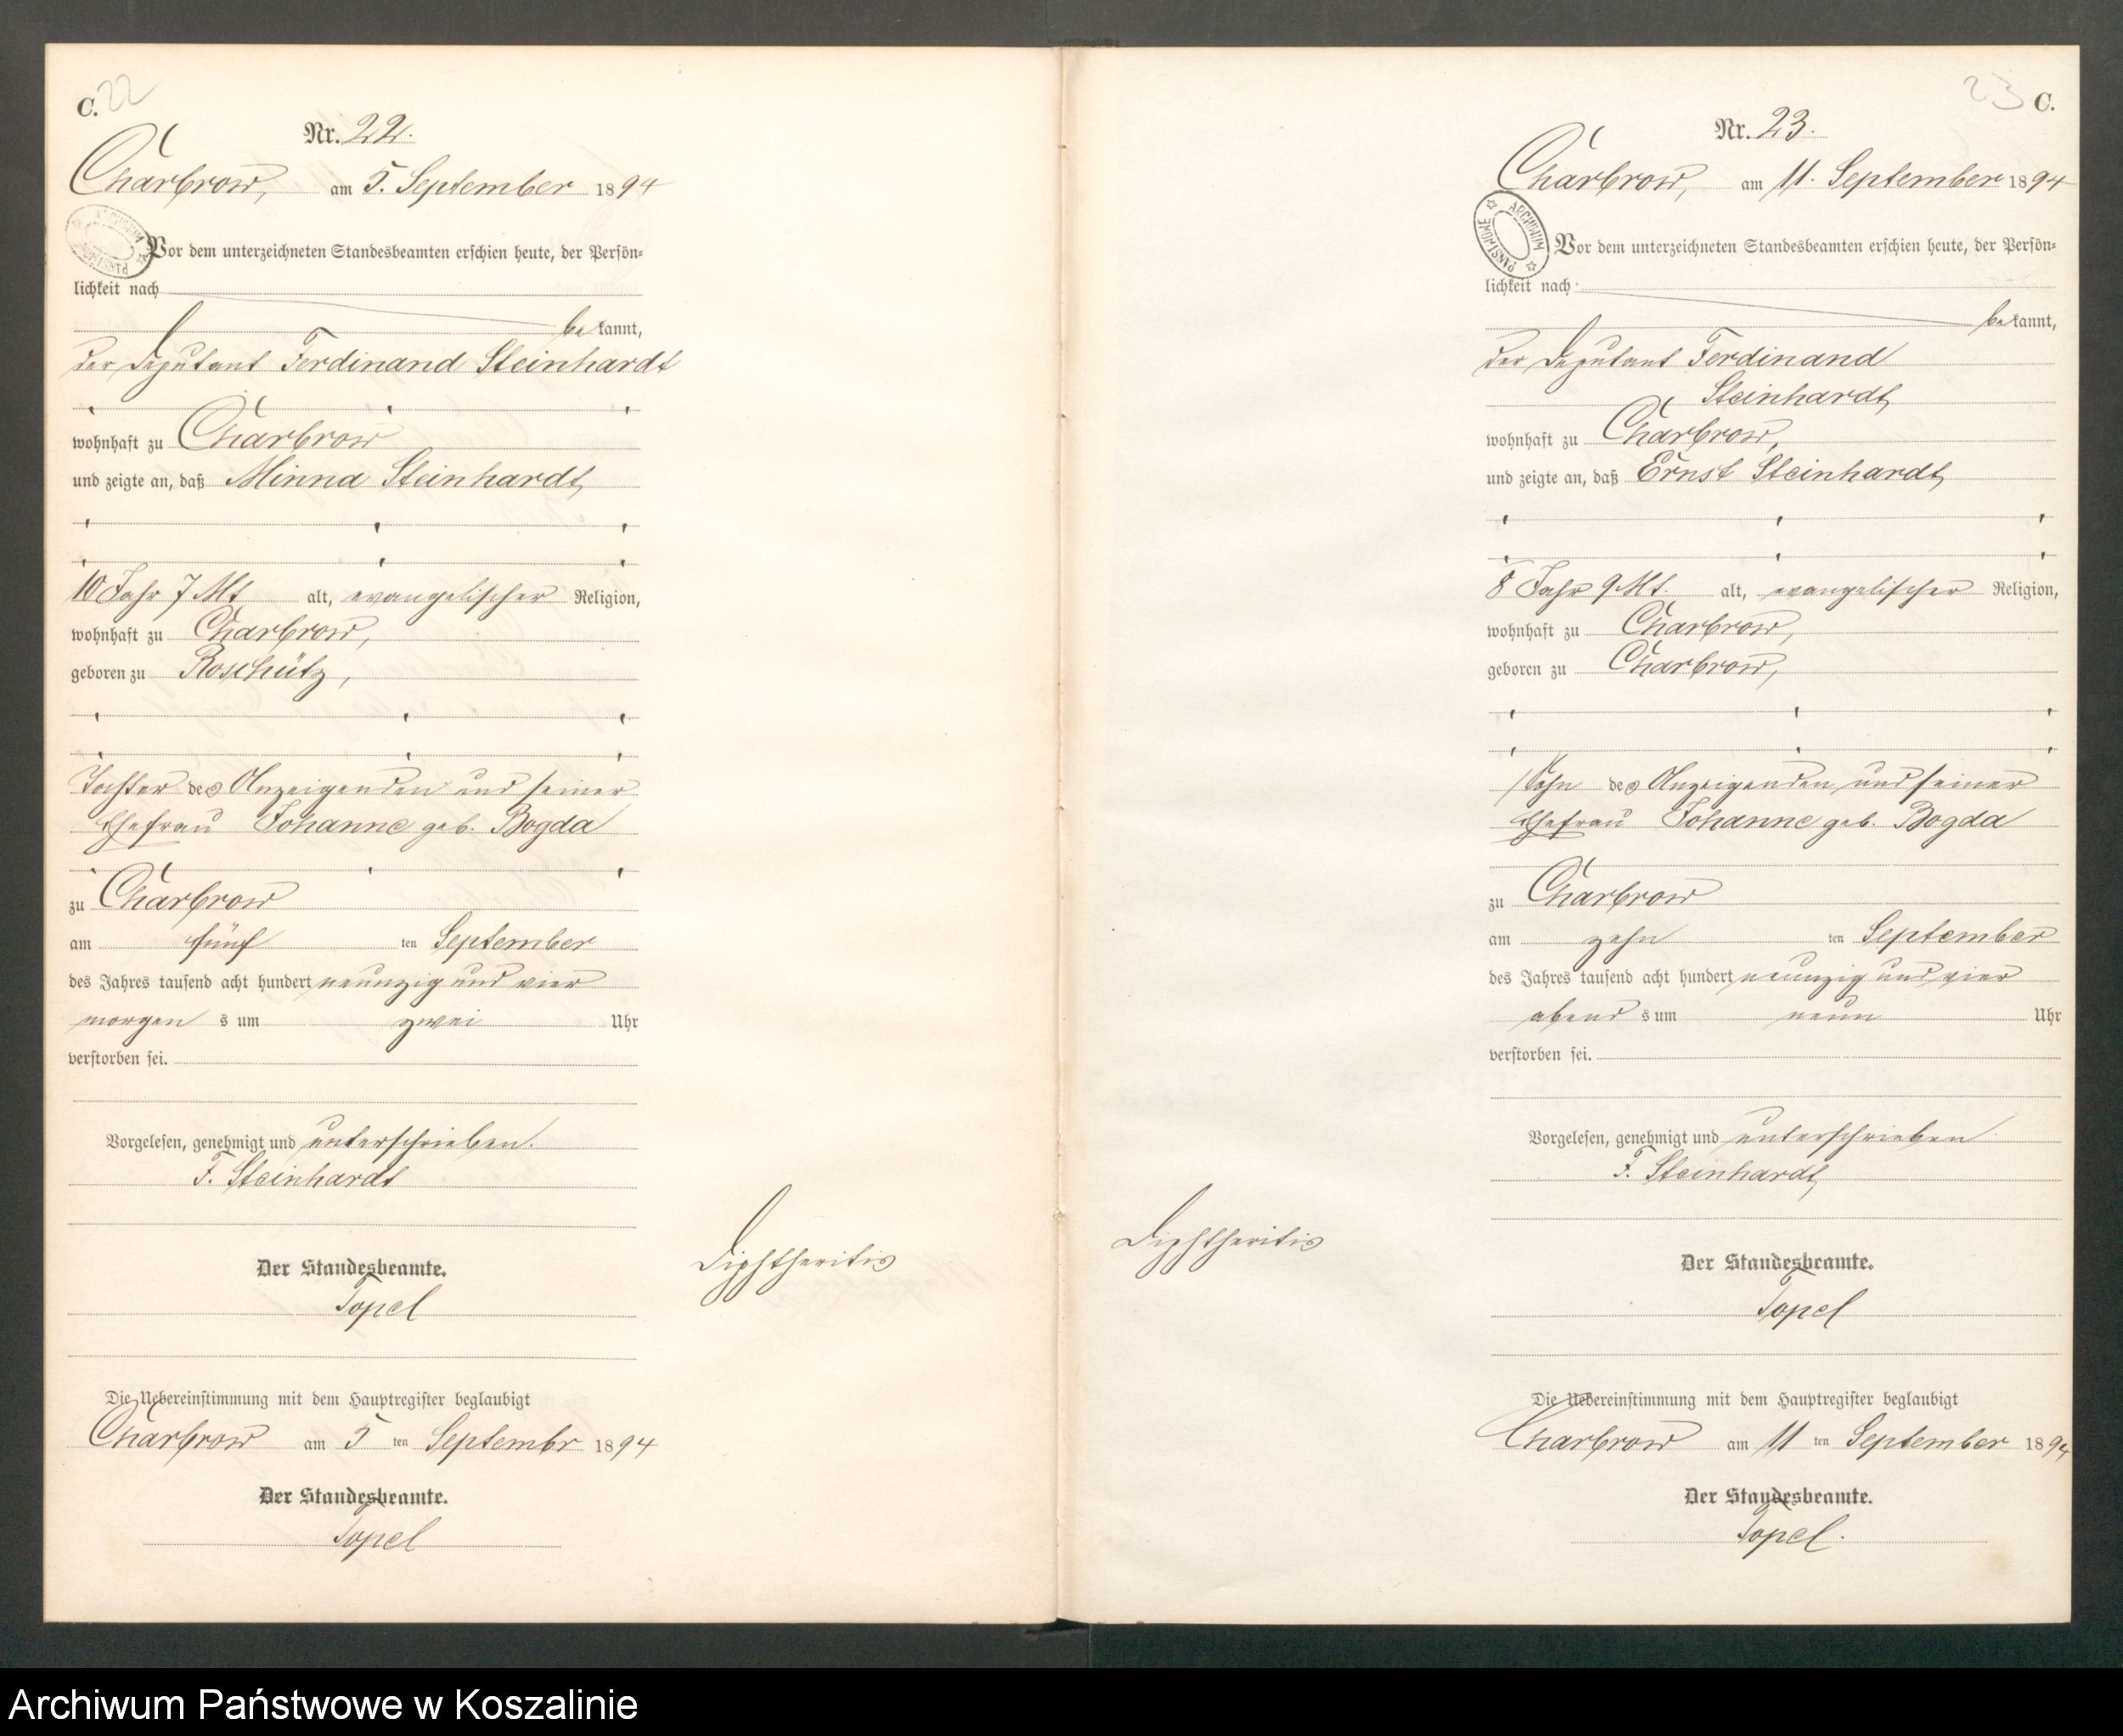 C. 22
Nr. 22.
Charbrow, am 5. September 1894
Vor dem unterzeichneten Standesbeamten erschien heute, der Persön-
lichkeit nach
be kannt,
der Deputant Ferdinand Steinhardt
wohnhaft zu Charbrow
und zeigte an, daß Minna Steinhardt,
10 Jahr 7 Mt alt, evangelischer Religion,
wohnhaft zu Charbrow,
geboren zu Roschütz,
Tochter des Anzeigenden und seiner
Ehefrau Johanne geb. Bogda
zu Charbrow
am fünf ten September
des Jahres tausend acht hundert neunzig und vier
morgen s um zwei Uhr
verstorben sei.
Vorgelesen, genehmigt und unterschrieben.
F. Steinhardt
Der Standesbeamte.
Topel
Diphtheritis
Die Uebereinstimmung mit dem Hauptregister beglaubigt
Charbrow am 5 ten Septembr 1894
Der Standesbeamte.
Topel
23 C.
Nr. 23.
Charbrow, am 11. September 1894
ARCHIWUM PAŃSTWOWE
Vor dem unterzeichneten Standesbeamten erschien heute, der Persön-
lichkeit nach
be kannt,
der Deputant Ferdinand
Steinhardt,
wohnhaft zu Charbrow,
und zeigte an, daß Ernst Steinhardt,
8 Jahr 9 Mt. alt, evangelischer Religion,
wohnhaft zu Charbrow,
geboren zu Charbrow,
Sohn des Anzeigenden und seiner
Ehefrau Johanne geb. Bogda
zu Charbrow
am zehn ten September
des Jahres tausend acht hundert neunzig und vier
abend s um neun Uhr
verstorben sei.
Vorgelesen, genehmigt und unterschrieben
F. Steinhardt,
Diphtheritis
Der Standesbeamte.
Topel
Die Uebereinstimmung mit dem Hauptregister beglaubigt
Charbrow am 11 ten September 1894
Der Standesbeamte.
Topel.
Archiwum Państwowe w Koszalinie